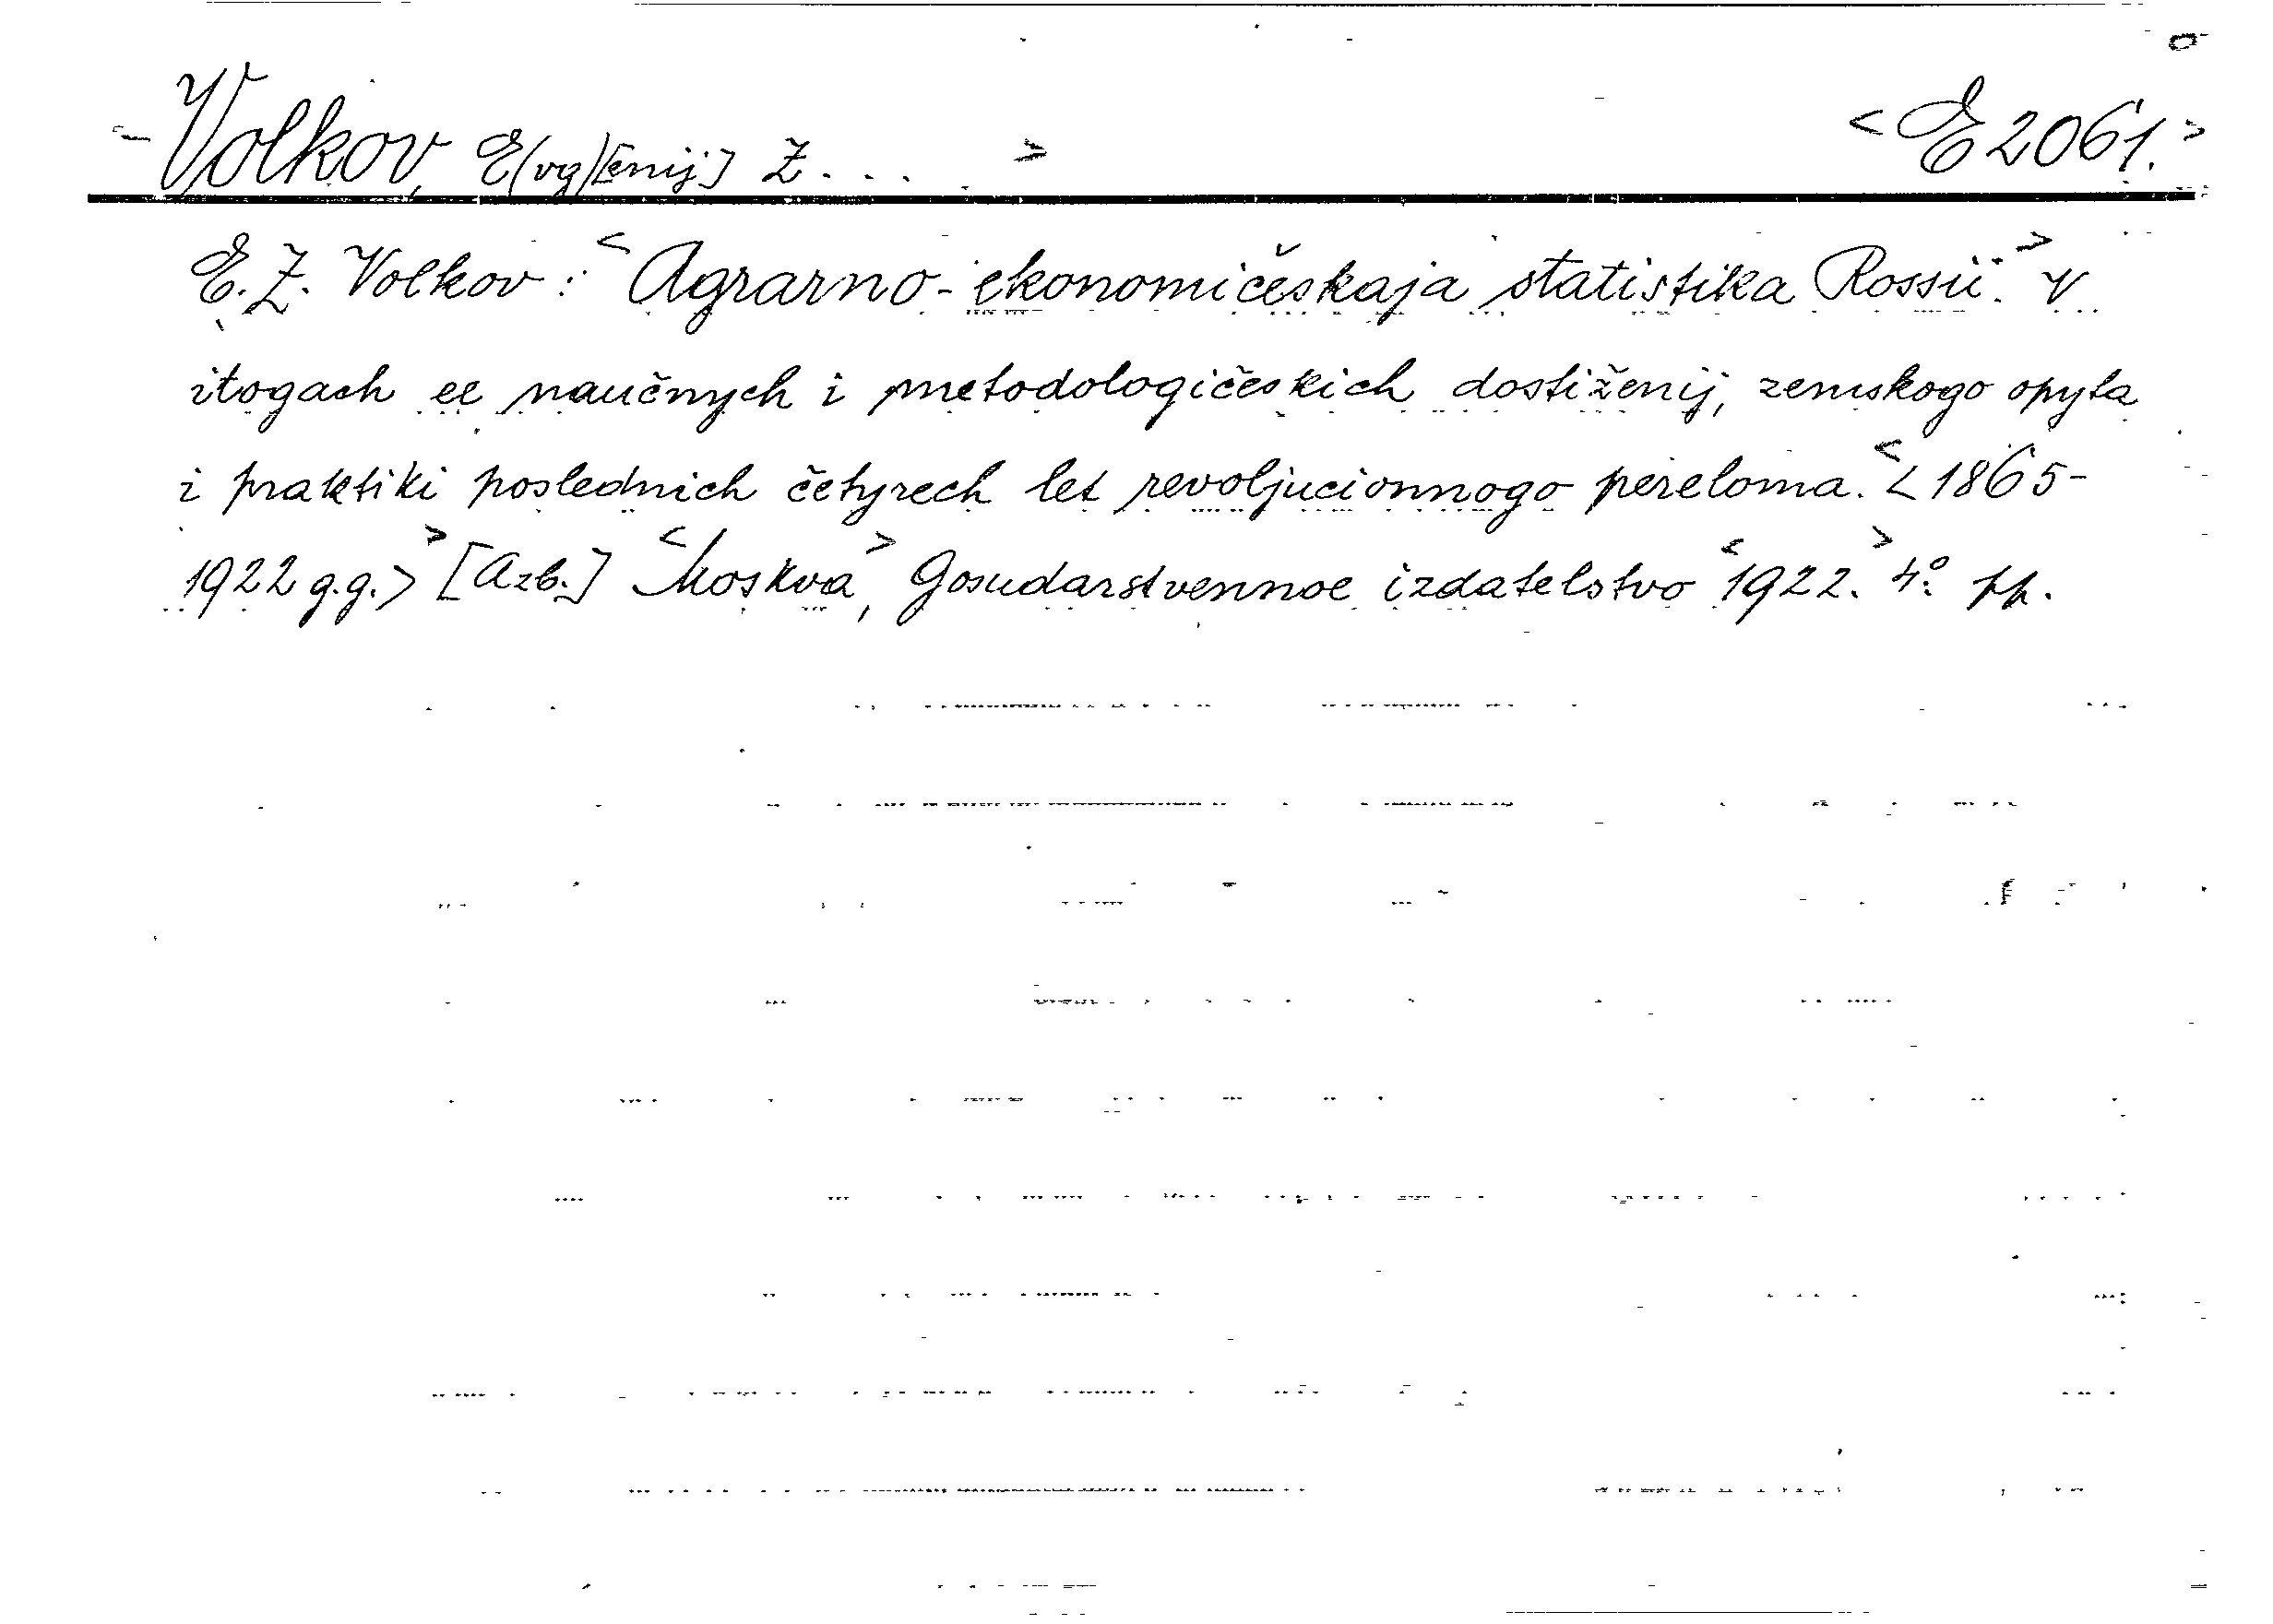 <Volkov, E(vg)[enij] Z. . . .> <E 2061.>
E. Z. Volkov: <Agrarno-ekonomičeskaja statistika Rossii.> V
itogach ee naučnych i metodologičeskich dostiženij, zemskogo opyta
i praktiki poslednich četyrech let revoljucionnogo pereloma. <<1865-
1922 g.g.>> [Azb.] <Moskva>, Gosudarstvennoe izdatelstvo <1922.> 4°.